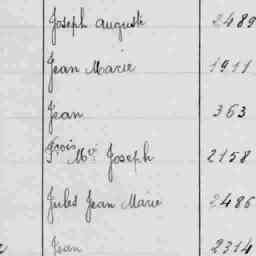 Joseph Auguste 2489
Jean Marie 1911
Jean 363
Frçois Mie Joseph 2158
Jules Jean Marie 2486
Jean 2314